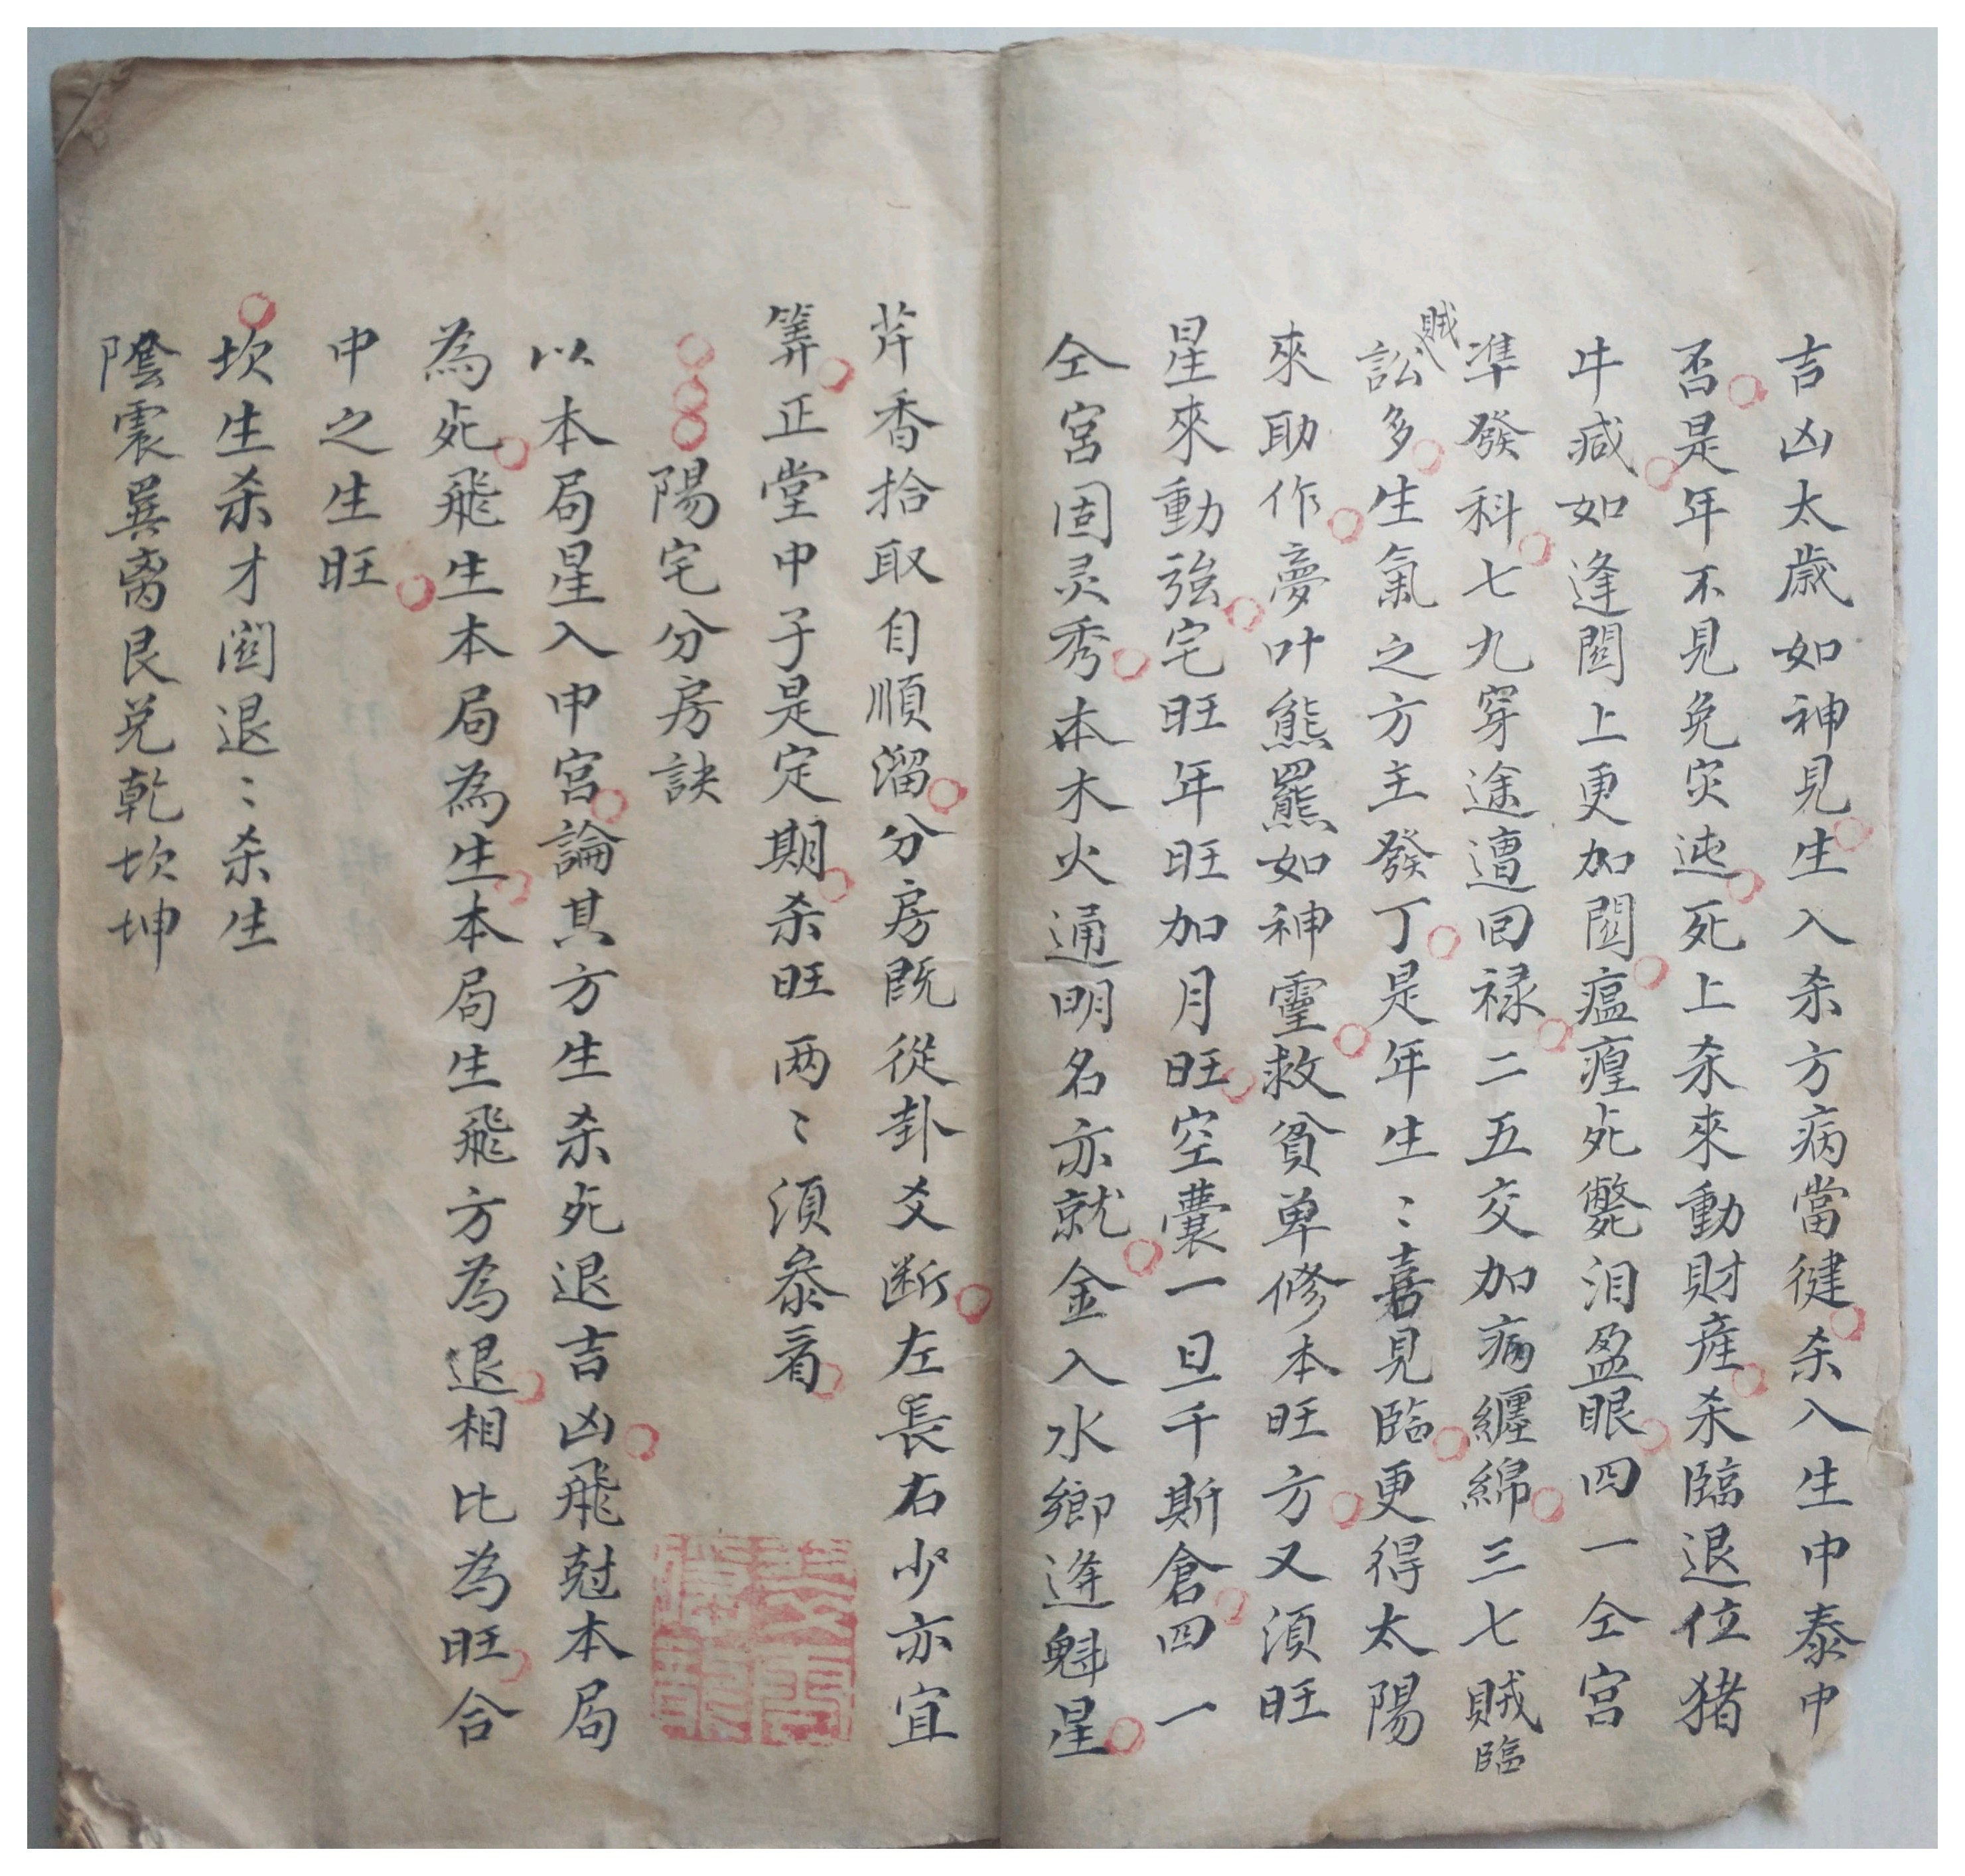 吉凶太歳如神見生入杀方病當健杀入生中泰中
否是年不見免灾迍死上杀來動財産杀臨退位猪
牛减如逢関上更加関瘟瘟死斃泪盈眼四一仝宫
凖發科七九穿途遭回禄二五交加病纏綿三七賊臨
賊訟多生氣之方主發丁是年生〻嘉見臨更得太陽
來助作夢叶熊羆如神靈救貧单修本旺方又須旺
星來動強宅旺年旺加月旺空囊一旦千斯倉四一
仝宮固灵秀本木火通明名亦就金入水鄉逢魁星
芹香拾取自順溜分房既從卦爻断左長右少亦宜
筭正堂中子是定期杀旺两〻須叅看
陽宅分房訣
以本局星入中宮論其方生杀死退吉凶飛尅本局
為死飛生本局為生本局生飛方為退相比為旺合
中之生旺
坎生杀才関退〻杀生
隂震巽离艮兑乾坎坤